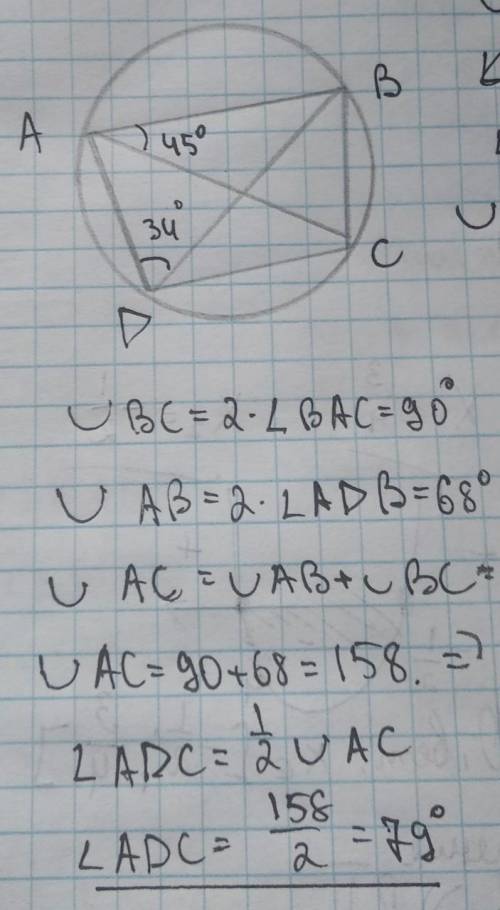 B
A
45°
34°
C
D
∪ BC = 2 · ∠ BAC = 90°
∪ AB = 2 · ∠ ADB = 68°
∪ AC = ∪ AB + ∪ BC =
∪ AC = 90 + 68 = 158. =>
∠ ADC = 1/2 ∪ AC
∠ ADC = 158/2 = 79°